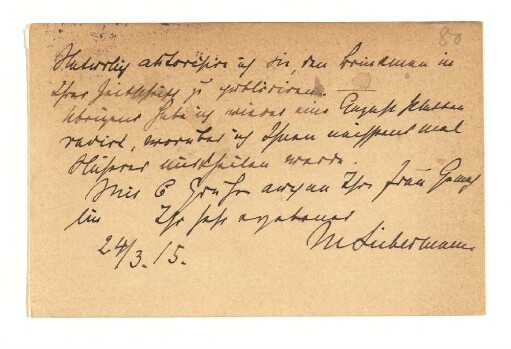 80
Natürlich autorisire ich Sie, den Brinckman in
Ihrer Zeitschrift zu publiciren.
Übrigens habe ich wieder eine Platten
radirt, worüber ich Ihnen nächstens mal
Näheres mittheilen werde.
Mit Grüßen auch an Ihre Frau Gemah
lin Ihr sehr ergebener
24/3.15. MLiebermann